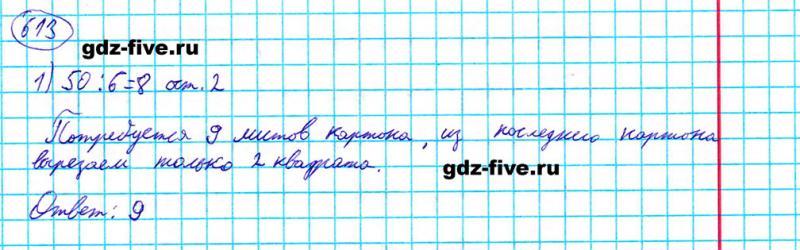 613
gdz-five.ru
1) 50:6=8 ост. 2
Потребуется 9 листов картона, из последнего картона
вырезаем только 2 квадрата.
gdz-five.ru
Ответ: 9